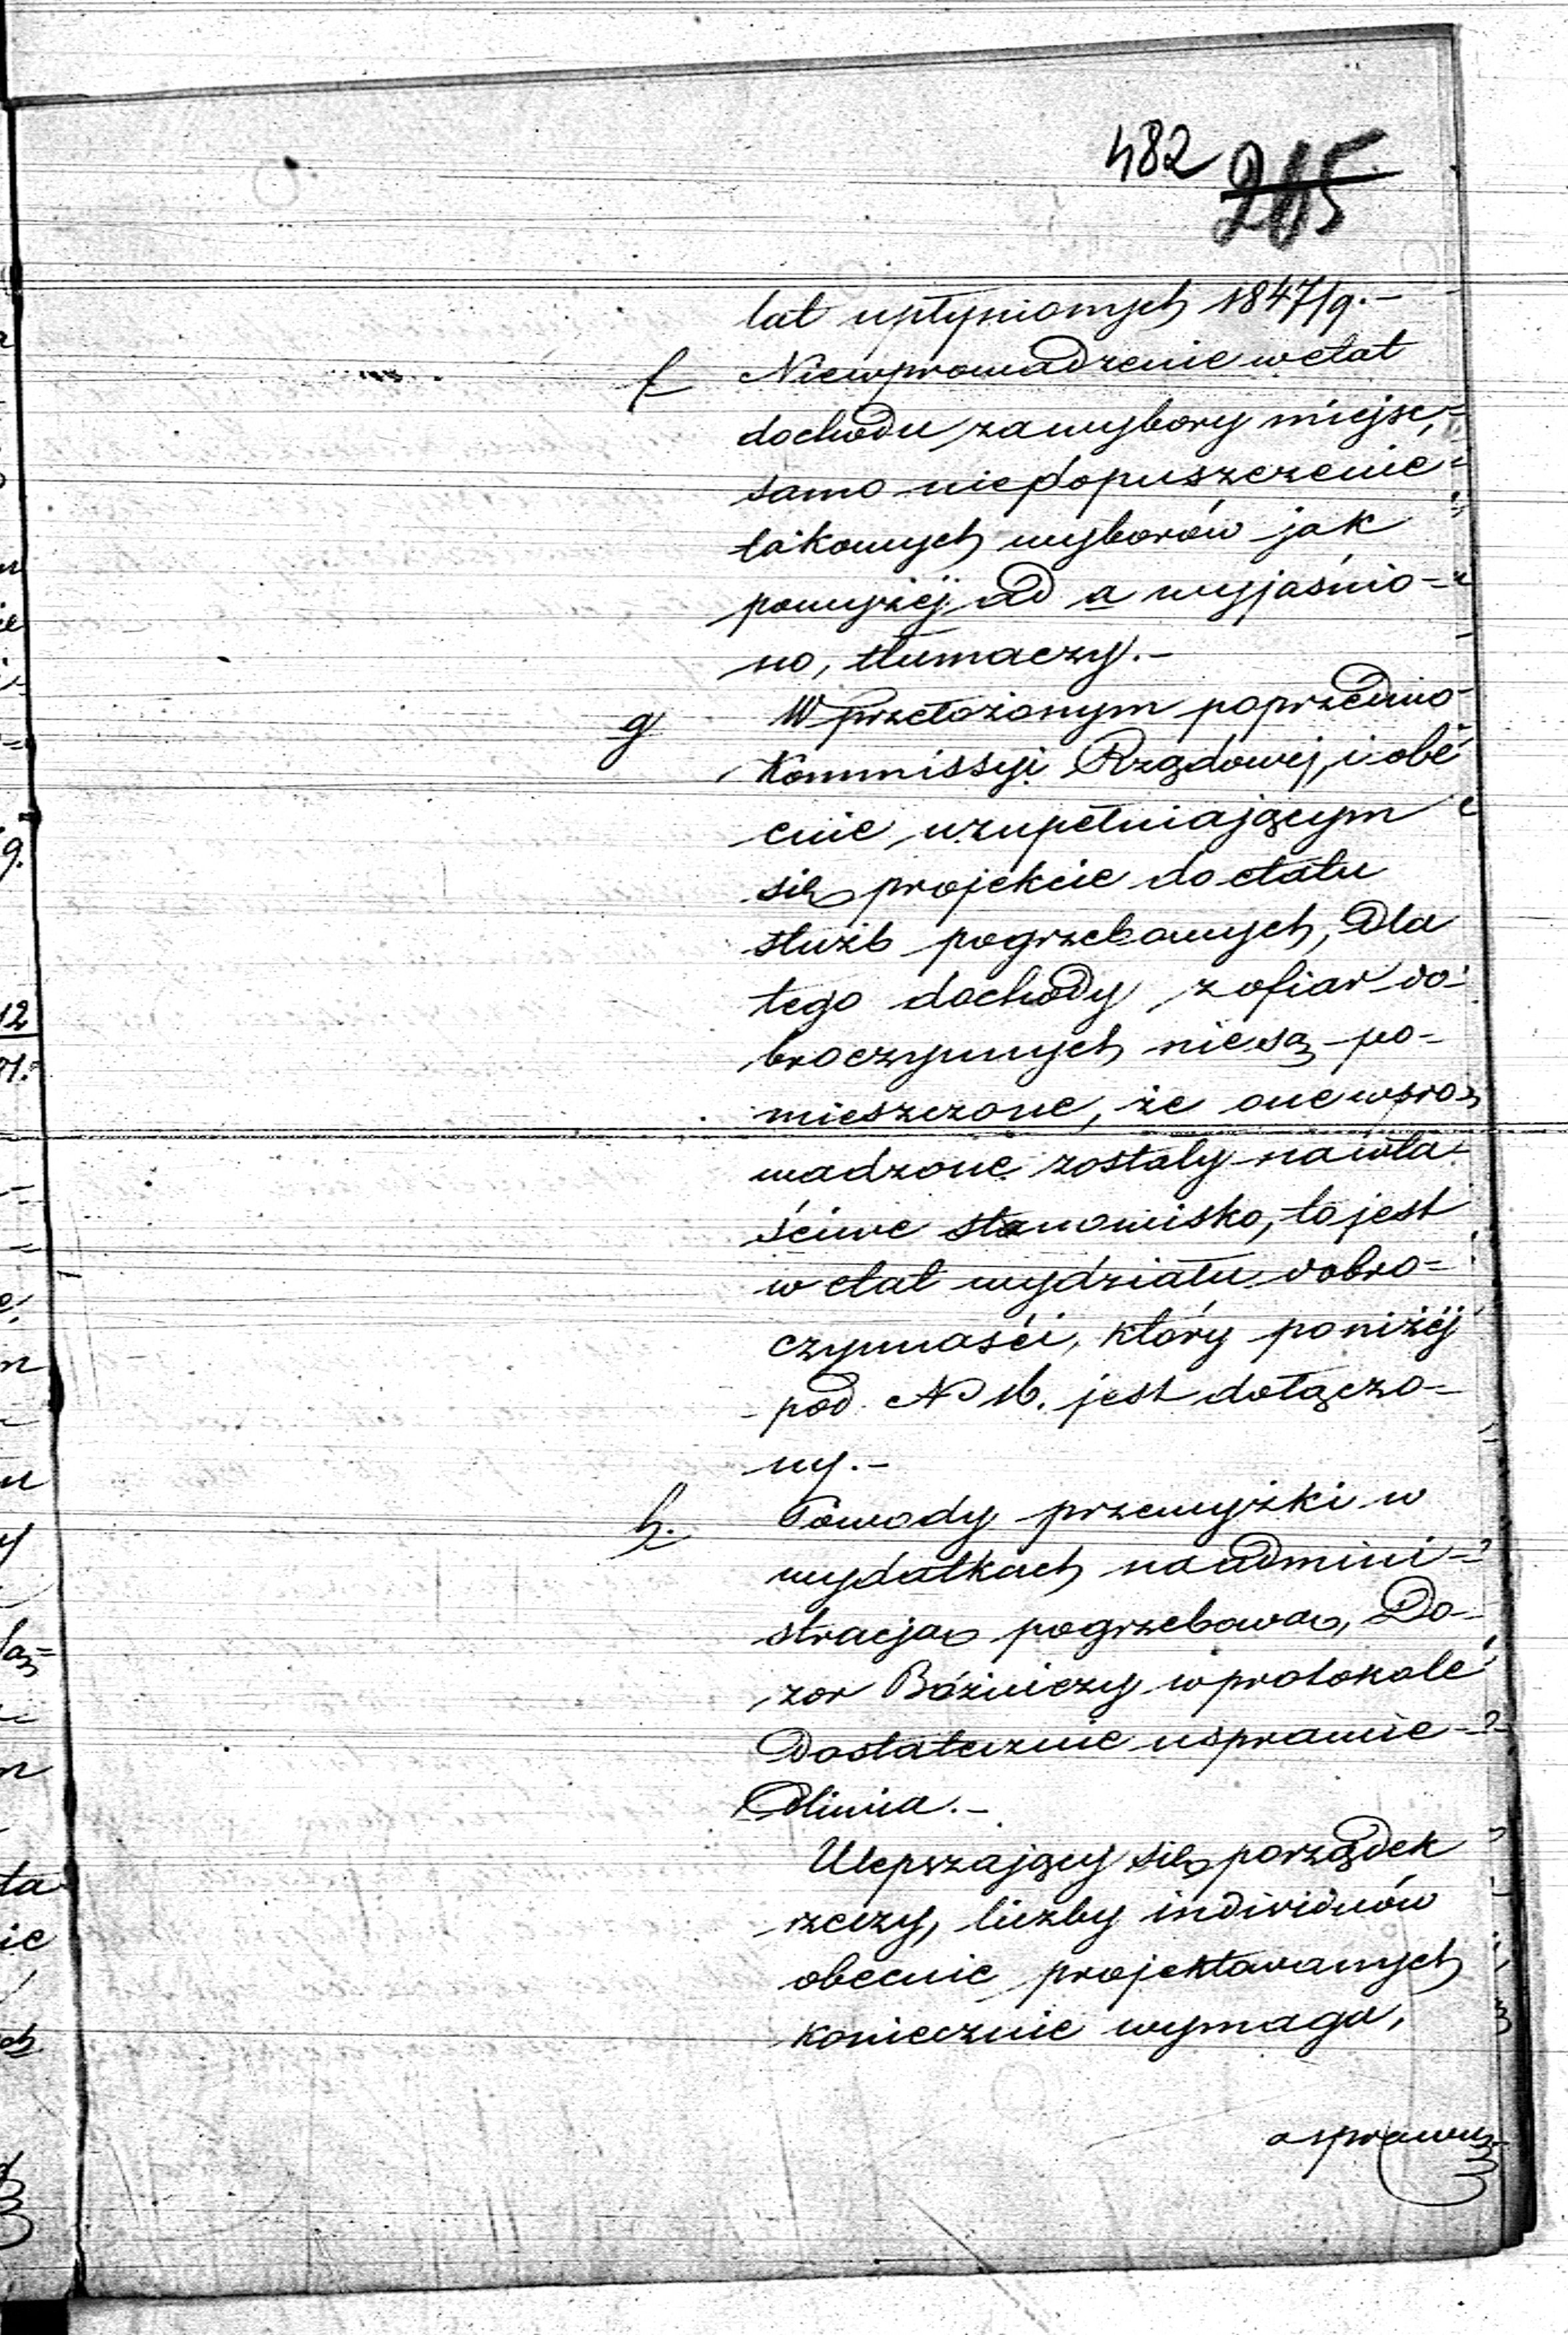 482 215
lat upłynionych 1847/9.-
f Niewprowadzenie w etat
dochodu za wybory miejsc,
samo niedopuszczenie
takowych wyborów jak
powyżej ad a wyjaśnio-
no, tłumaczy.-
g W przełożonym poprzednio
Kommissyi Rządowej, i obe
cnie uzupełniającym
się projekcie do etatu
służb pogrzebowych, dla
tego dochody z ofiar do-
broczynnych nie są po-
mieszczone, że one wpro-
wadzone zostały na wła-
ściwe stanowisko, to jest
w etat wydziału dobro=
czynności, który poniżéj
pod No 16. jest dołączo-
ny.-
h. Powody przewyżki w
wydatkach na admini-
stracją pogrzebową, Do-
zor Bóżniczy w protokole
dostatecznie usprawie-
dliwia.-
Ulepszający się porządek
rzeczy, liczby individuów
obecnie projektowanych
koniecznie wymaga,